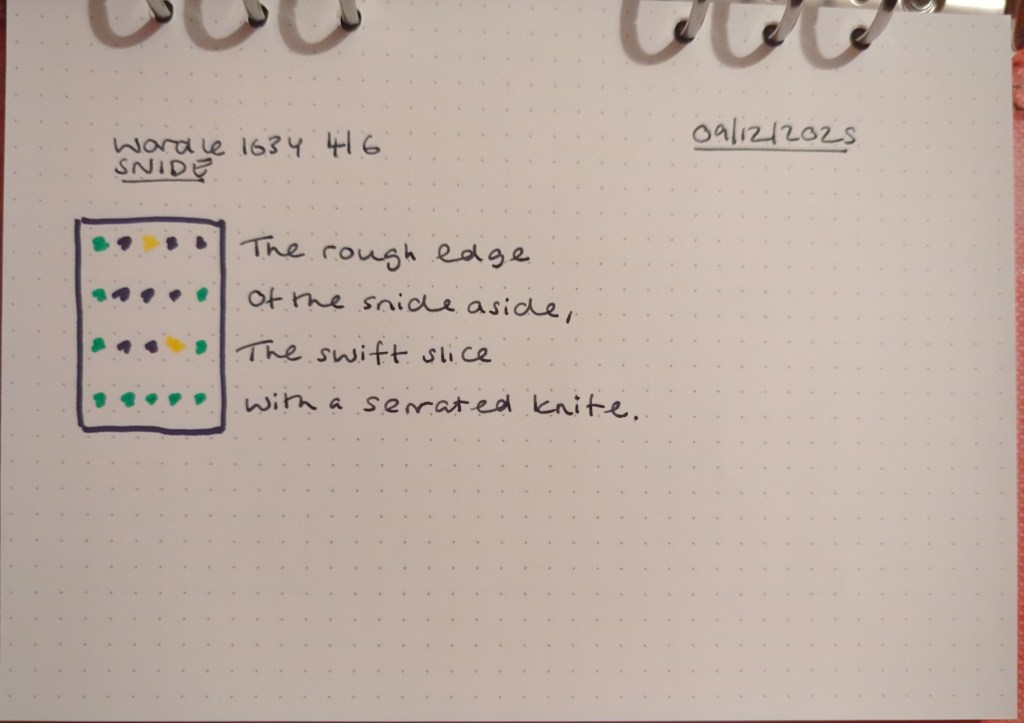 Wordle 1634 4/6
09/12/2025
SNIDE
The rough edge
Of the snide aside,
The swift slice
With a serrated knife.